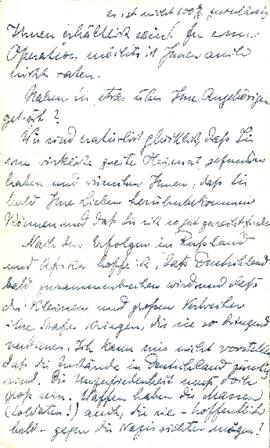 es ist nicht 100%
Ihnen erhältlich sein! Zu einer
Operation möchte ich Ihnen auch
nicht raten.
Haben Sie etwas über Ihre Angehörigen
gehört?
Wir sind natürlich glücklich daß Sie
eine wirkliche zweite Heimat gefunden
haben und wünschen Ihnen, daß Sie
bald Ihre Lieben herüberbekommen
können und daß Sie sich
Nach den Erfolgen in Rußland
und Afrika hoffe ich, daß Deutschland
bald zusammenbrechen wird und daß
die kleinen und großen Verbrecher
ihre Strafe kriegen, die sie so dringend
verdienen. Ich kann mir nicht vorstellen
daß die Zustände in Deutschland günstig
sind. Die Unzufriedenheit muß doch
groß sein. Waffen haben die Massen
(Soldaten!) auch, die sie - hoffentlich
bald - gegen die Nazis richten mögen!